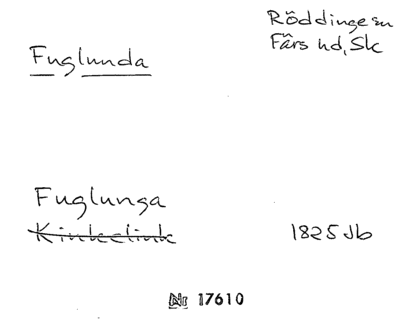 Röddinge sn
Färs hd, Sk
Fuglunda
Fuglunga
1825 Jb
Nr 17610